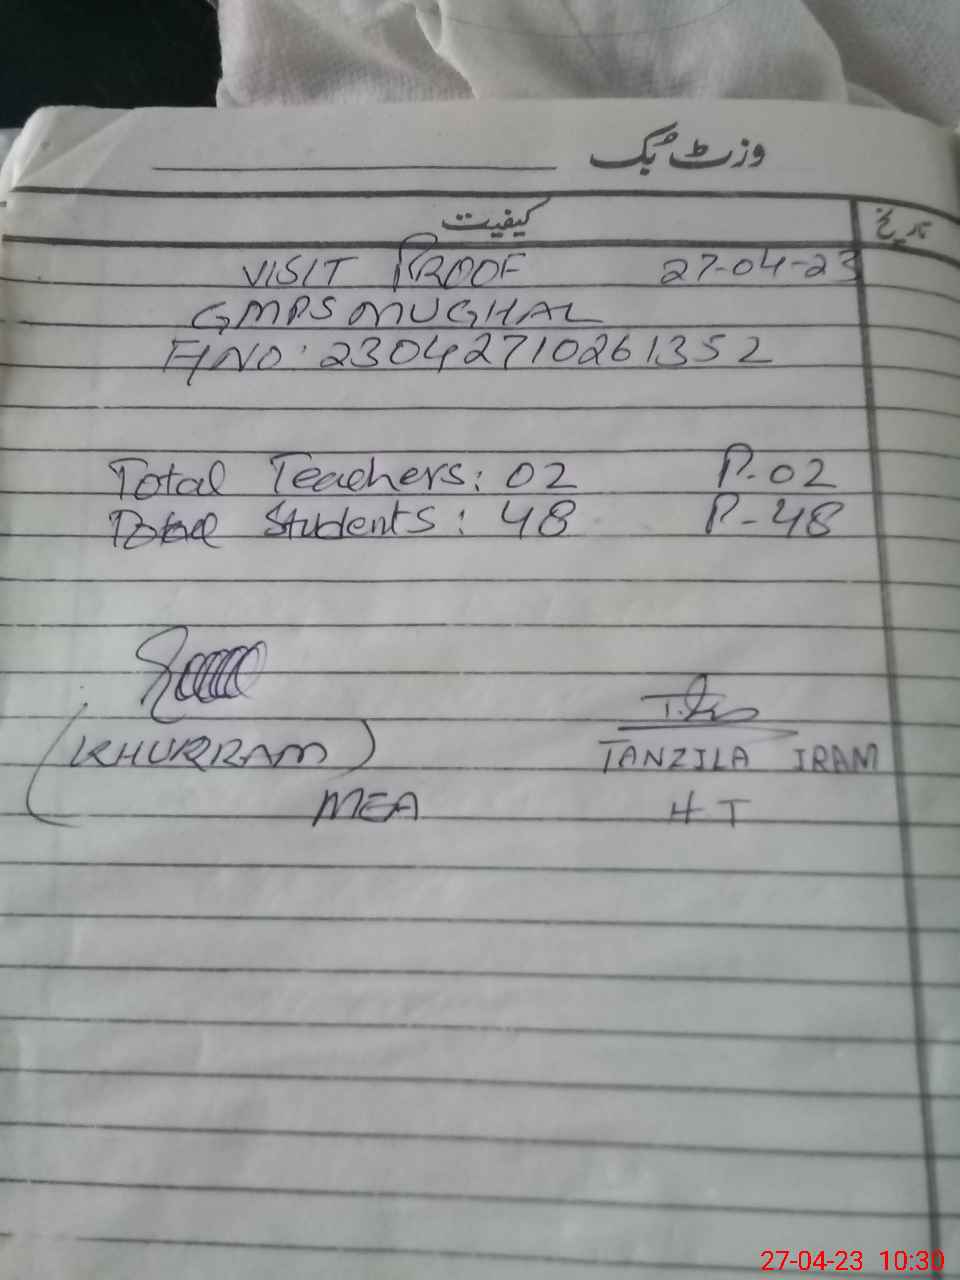 وزٹ بک
کیفیت تاریخ
VISIT PROOF 27-04-23
GMPS MUGHAL
F/NO: 23042710261352
Total Teachers: 02 P-02
Total Students: 48 P-48
(KHURRAM)
TANZILA IRAM
MEA
HT
27-04-23 10:30